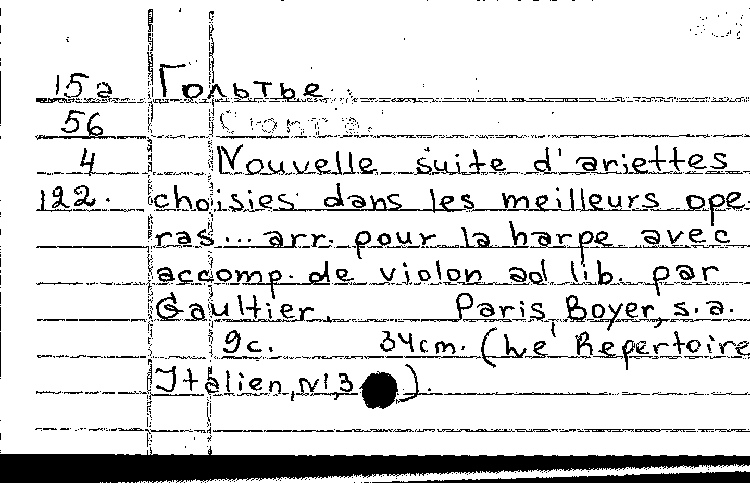 15а Гольтье.
56 Сюита.
4 Nouvelle suite d'ariettes
122. choisies dans les meilleurs ope-
ras... arr. pour la harpe avec
accomp. de violon ad lib. par
Gaultier. Paris, Boyer, s.a.
9c. 34cm. (Le Repertoire
Italien, N1,3 ).